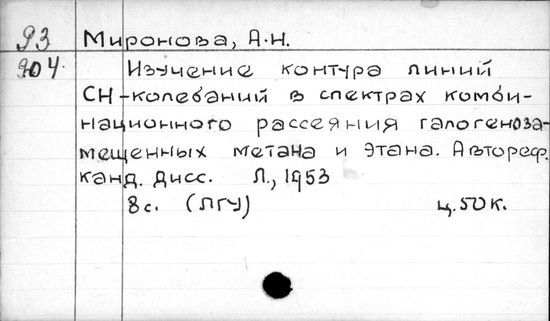 93 Миронова, А.Н.
904. Изучение контура линий
СН-колебаний в спектрах комби-
национного рассеяния галогеноза-
мещенных метана и этана. Автореф.
канд. дисс. Л., 1953
8с. (ЛГУ) ц.50к.